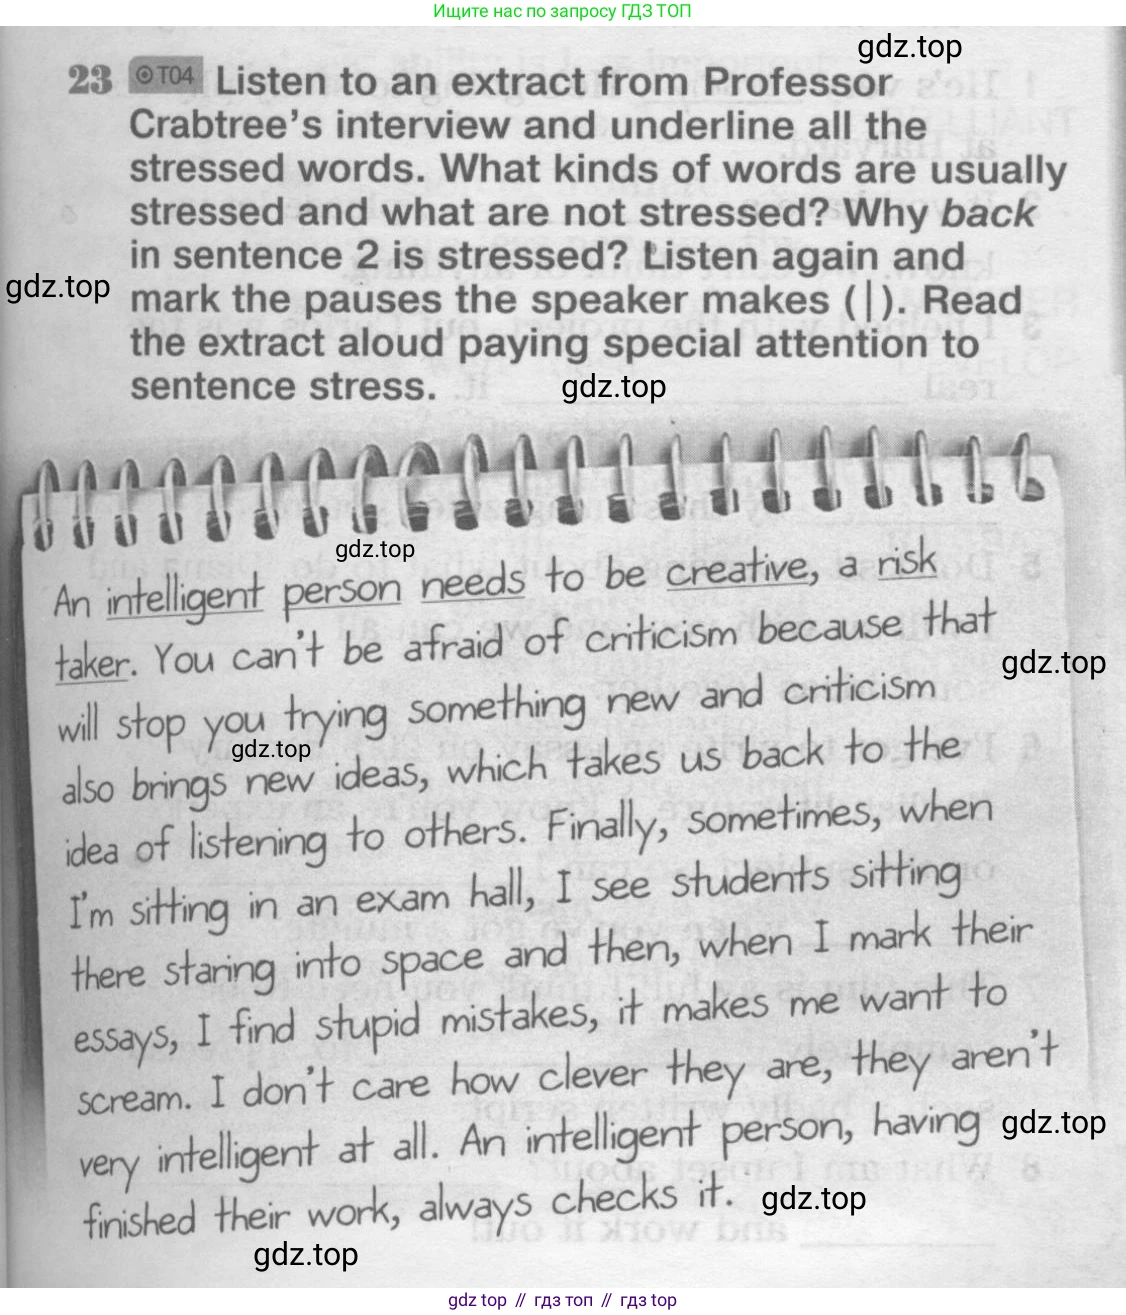 Ищите нас по запросу ГДЗ ТОП
gdz.top
23 T04 Listen to an extract from Professor
Crabtree's interview and underline all the
stressed words. What kinds of words are usually
stressed and what are not stressed? Why back
in sentence 2 is stressed? Listen again and
gdz.top
mark the pauses the speaker makes (|). Read
the extract aloud paying special attention to
sentence stress.
gdz.top
gdz.top
An intelligent person needs to be creative, a risk
taker. You can't be afraid of criticism because that
gdz.top
will stop you trying something new and criticism
gdz.top
also brings new ideas, which takes us back to the
idea of listening to others. Finally, sometimes, when
I'm sitting in an exam hall, I see students sitting
there staring into space and then, when I mark their
essays, I find stupid mistakes, it makes me want to
scream. I don't care how clever they are, they aren't
very intelligent at all. An intelligent person, having
gdz.top
finished their work, always checks it.
gdz.top
gdz.top
gdz top // гдз топ // gdz top